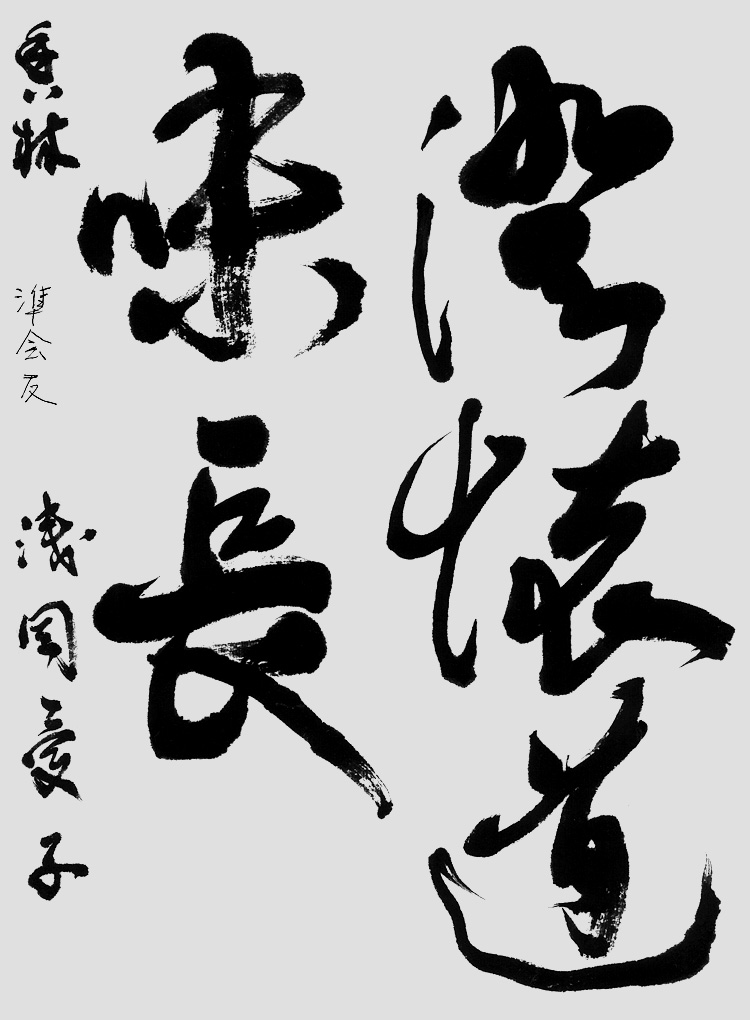 澄懐道
味長
香林 準会友 浅岡愛子